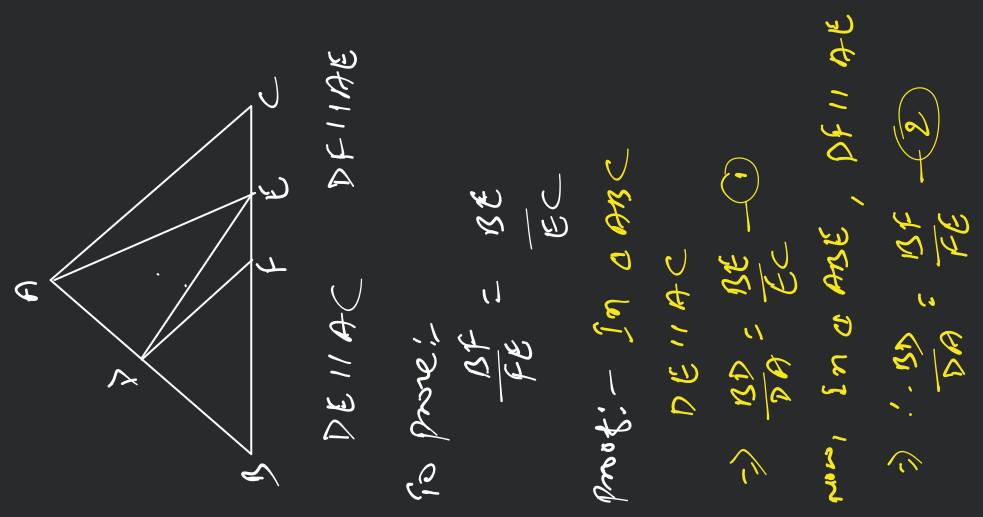 A
D
B
F
E
C
DE || AC DF || AE
To prove:-
BF/FE = BE/EC
Proof:- In △ ABC
DE || AC
⇒ BD/DA = BE/EC — ①
Now, In △ ABE, DF || AE
⇒ ∴ BD/DA = BF/FE — ②